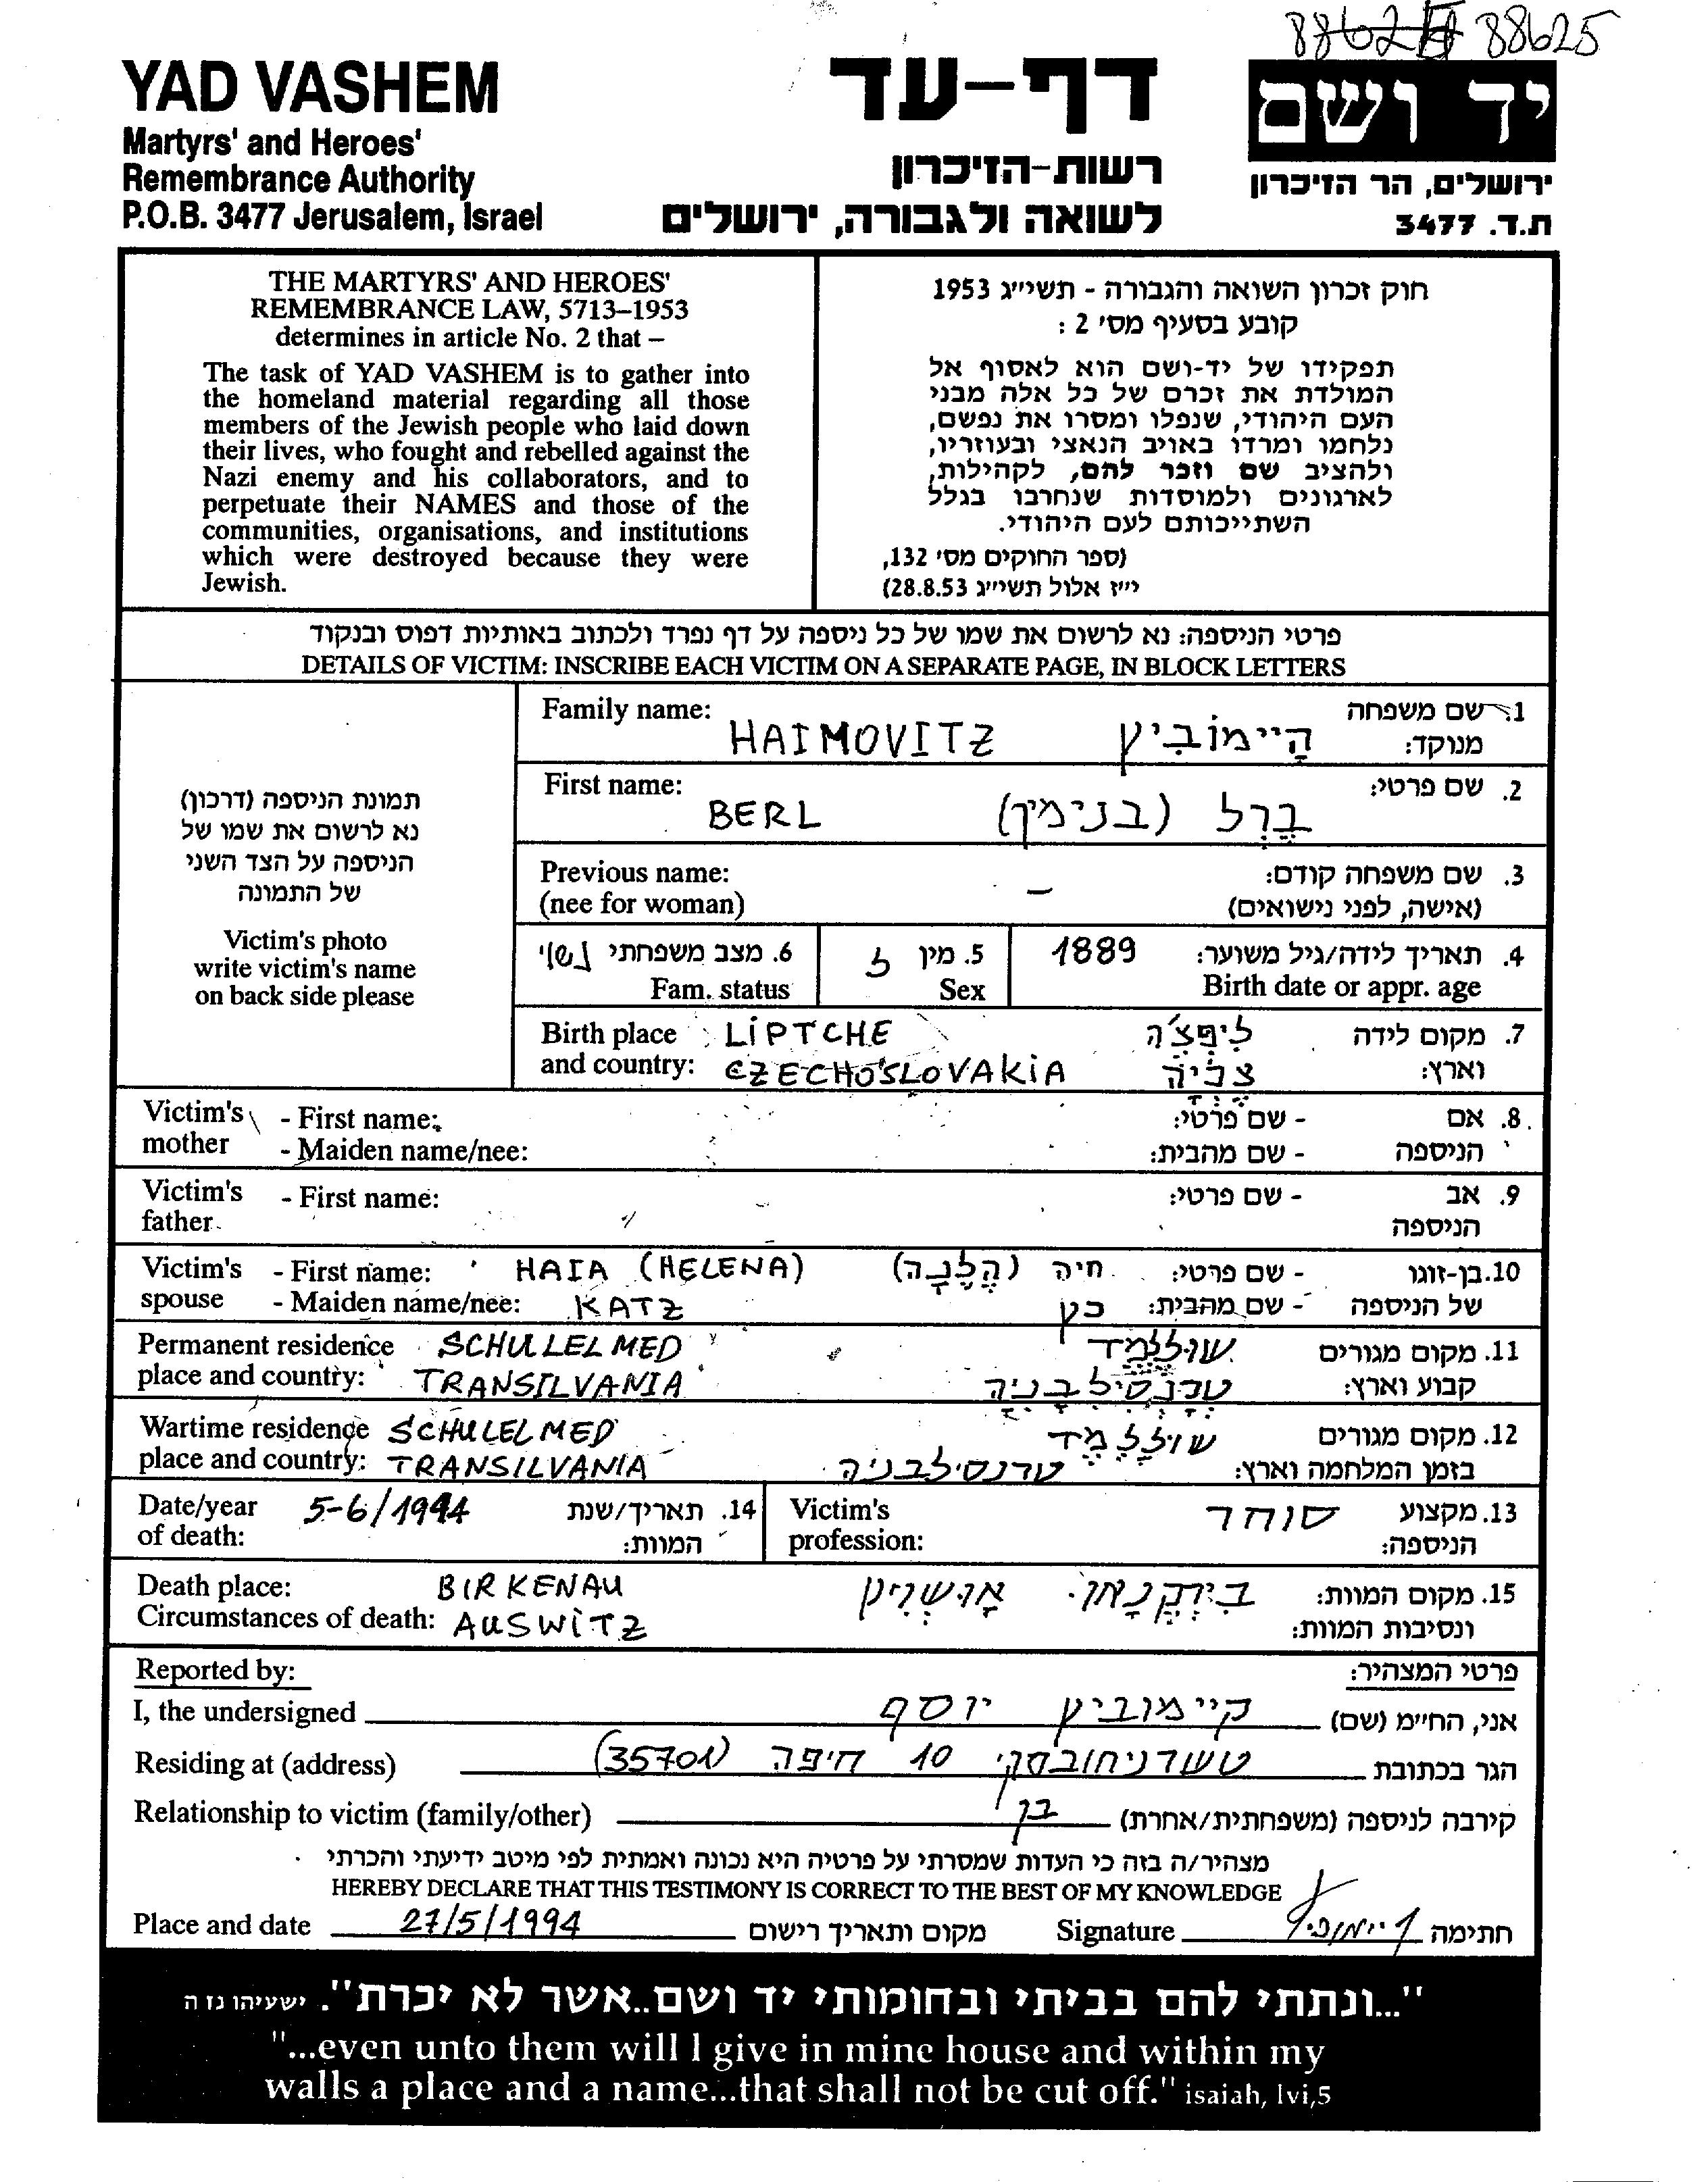 88625
YAD VASHEM
Martyrs' and Heroes'
Remembrance Authority
P.O.B. 3477 Jerusalem, Israel
דף-עד
רשות-הזיכרון
לשואה ולגבורה, ירושלים
יד ושם
ירושלים, הר הזיכרון
ת.ד. 3477
THE MARTYRS' AND HEROES'
REMEMBRANCE LAW, 5713–1953
determines in article No. 2 that –
The task of YAD VASHEM is to gather into
the homeland material regarding all those
members of the Jewish people who laid down
their lives, who fought and rebelled against the
Nazi enemy and his collaborators, and to
perpetuate their NAMES and those of the
communities, organisations, and institutions
which were destroyed because they were
Jewish.
חוק זכרון השואה והגבורה - תשי״ג 1953
קובע בסעיף מס׳ 2 :
תפקידו של יד-ושם הוא לאסוף אל
המולדת את זכרם של כל אלה מבני
העם היהודי, שנפלו ומסרו את נפשם,
נלחמו ומרדו באויב הנאצי ובעוזריו,
ולהציב שם וזכר להם, לקהילות,
לארגונים ולמוסדות שנחרבו בגלל
השתייכותם לעם היהודי.
(ספר החוקים מס׳ 132,
י״ז אלול תשי״ג 28.8.53)
פרטי הניספה: נא לרשום את שמו של כל ניספה על דף נפרד ולכתוב באותיות דפוס ובנקוד
DETAILS OF VICTIM: INSCRIBE EACH VICTIM ON A SEPARATE PAGE, IN BLOCK LETTERS
תמונת הניספה (דרכון)
נא לרשום את שמו של
הניספה על הצד השני
של התמונה
Victim's photo
write victim's name
on back side please
Family name: HAIMOVITZ הָיימוֹבִיץ 1. שם משפחה
מנוקד:
First name: BERL בֶּרֶל (בנימין) 2. שם פרטי:
Previous name: – 3. שם משפחה קודם:
(nee for woman) (אישה, לפני נישואים)
6. מצב משפחתי נשוי 5. מין ז 1889 4. תאריך לידה/גיל משוער:
Fam. status Sex Birth date or appr. age
Birth place LIPTCHE ליפצ'ה 7. מקום לידה
and country: CZECHOSLOVAKIA צ'כיה וארץ:
Victim's - First name: - שם פרטי: 8. אם
mother - Maiden name/nee: - שם מהבית: הניספה
Victim's - First name: - שם פרטי: 9. אב
father הניספה
Victim's - First name: HAIA (HELENA) חיה (הֶלֶנָה) - שם פרטי: 10. בן-זוגו
spouse - Maiden name/nee: KATZ כץ - שם מהבית: של הניספה
Permanent residence SCHULLELMED שוללמד 11. מקום מגורים
place and country: TRANSILVANIA טרנסילבניה קבוע וארץ:
Wartime residence SCHULELMED שוללמד 12. מקום מגורים
place and country: TRANSILVANIA טרנסילבניה בזמן המלחמה וארץ:
Date/year 5-6/1944 14. תאריך/שנת Victim's סוחר 13. מקצוע
of death: המוות: profession: הניספה:
Death place: BIRKENAU בירקנאו 15. מקום המוות:
Circumstances of death: AUSWITZ אושויץ ונסיבות המוות:
Reported by: פרטי המצהיר:
I, the undersigned היימוביץ יוסף אני, החיימ (שם)
Residing at (address) טשרניחובסקי 10 חיפה (35701) הגר בכתובת
Relationship to victim (family/other) בן קירבה לניספה (משפחתית/אחרת)
מצהיר/ה בזה כי העדות שמסרתי על פרטיה היא נכונה ואמתית לפי מיטב ידיעתי והכרתי
HEREBY DECLARE THAT THIS TESTIMONY IS CORRECT TO THE BEST OF MY KNOWLEDGE
Place and date 27/5/1994 מקום ותאריך רישום Signature חתימה
"...ונתתי להם בביתי ובחומותי יד ושם..אשר לא יכרת". ישעיהו נז ה
"...even unto them will I give in mine house and within my
walls a place and a name...that shall not be cut off." isaiah, lvi,5